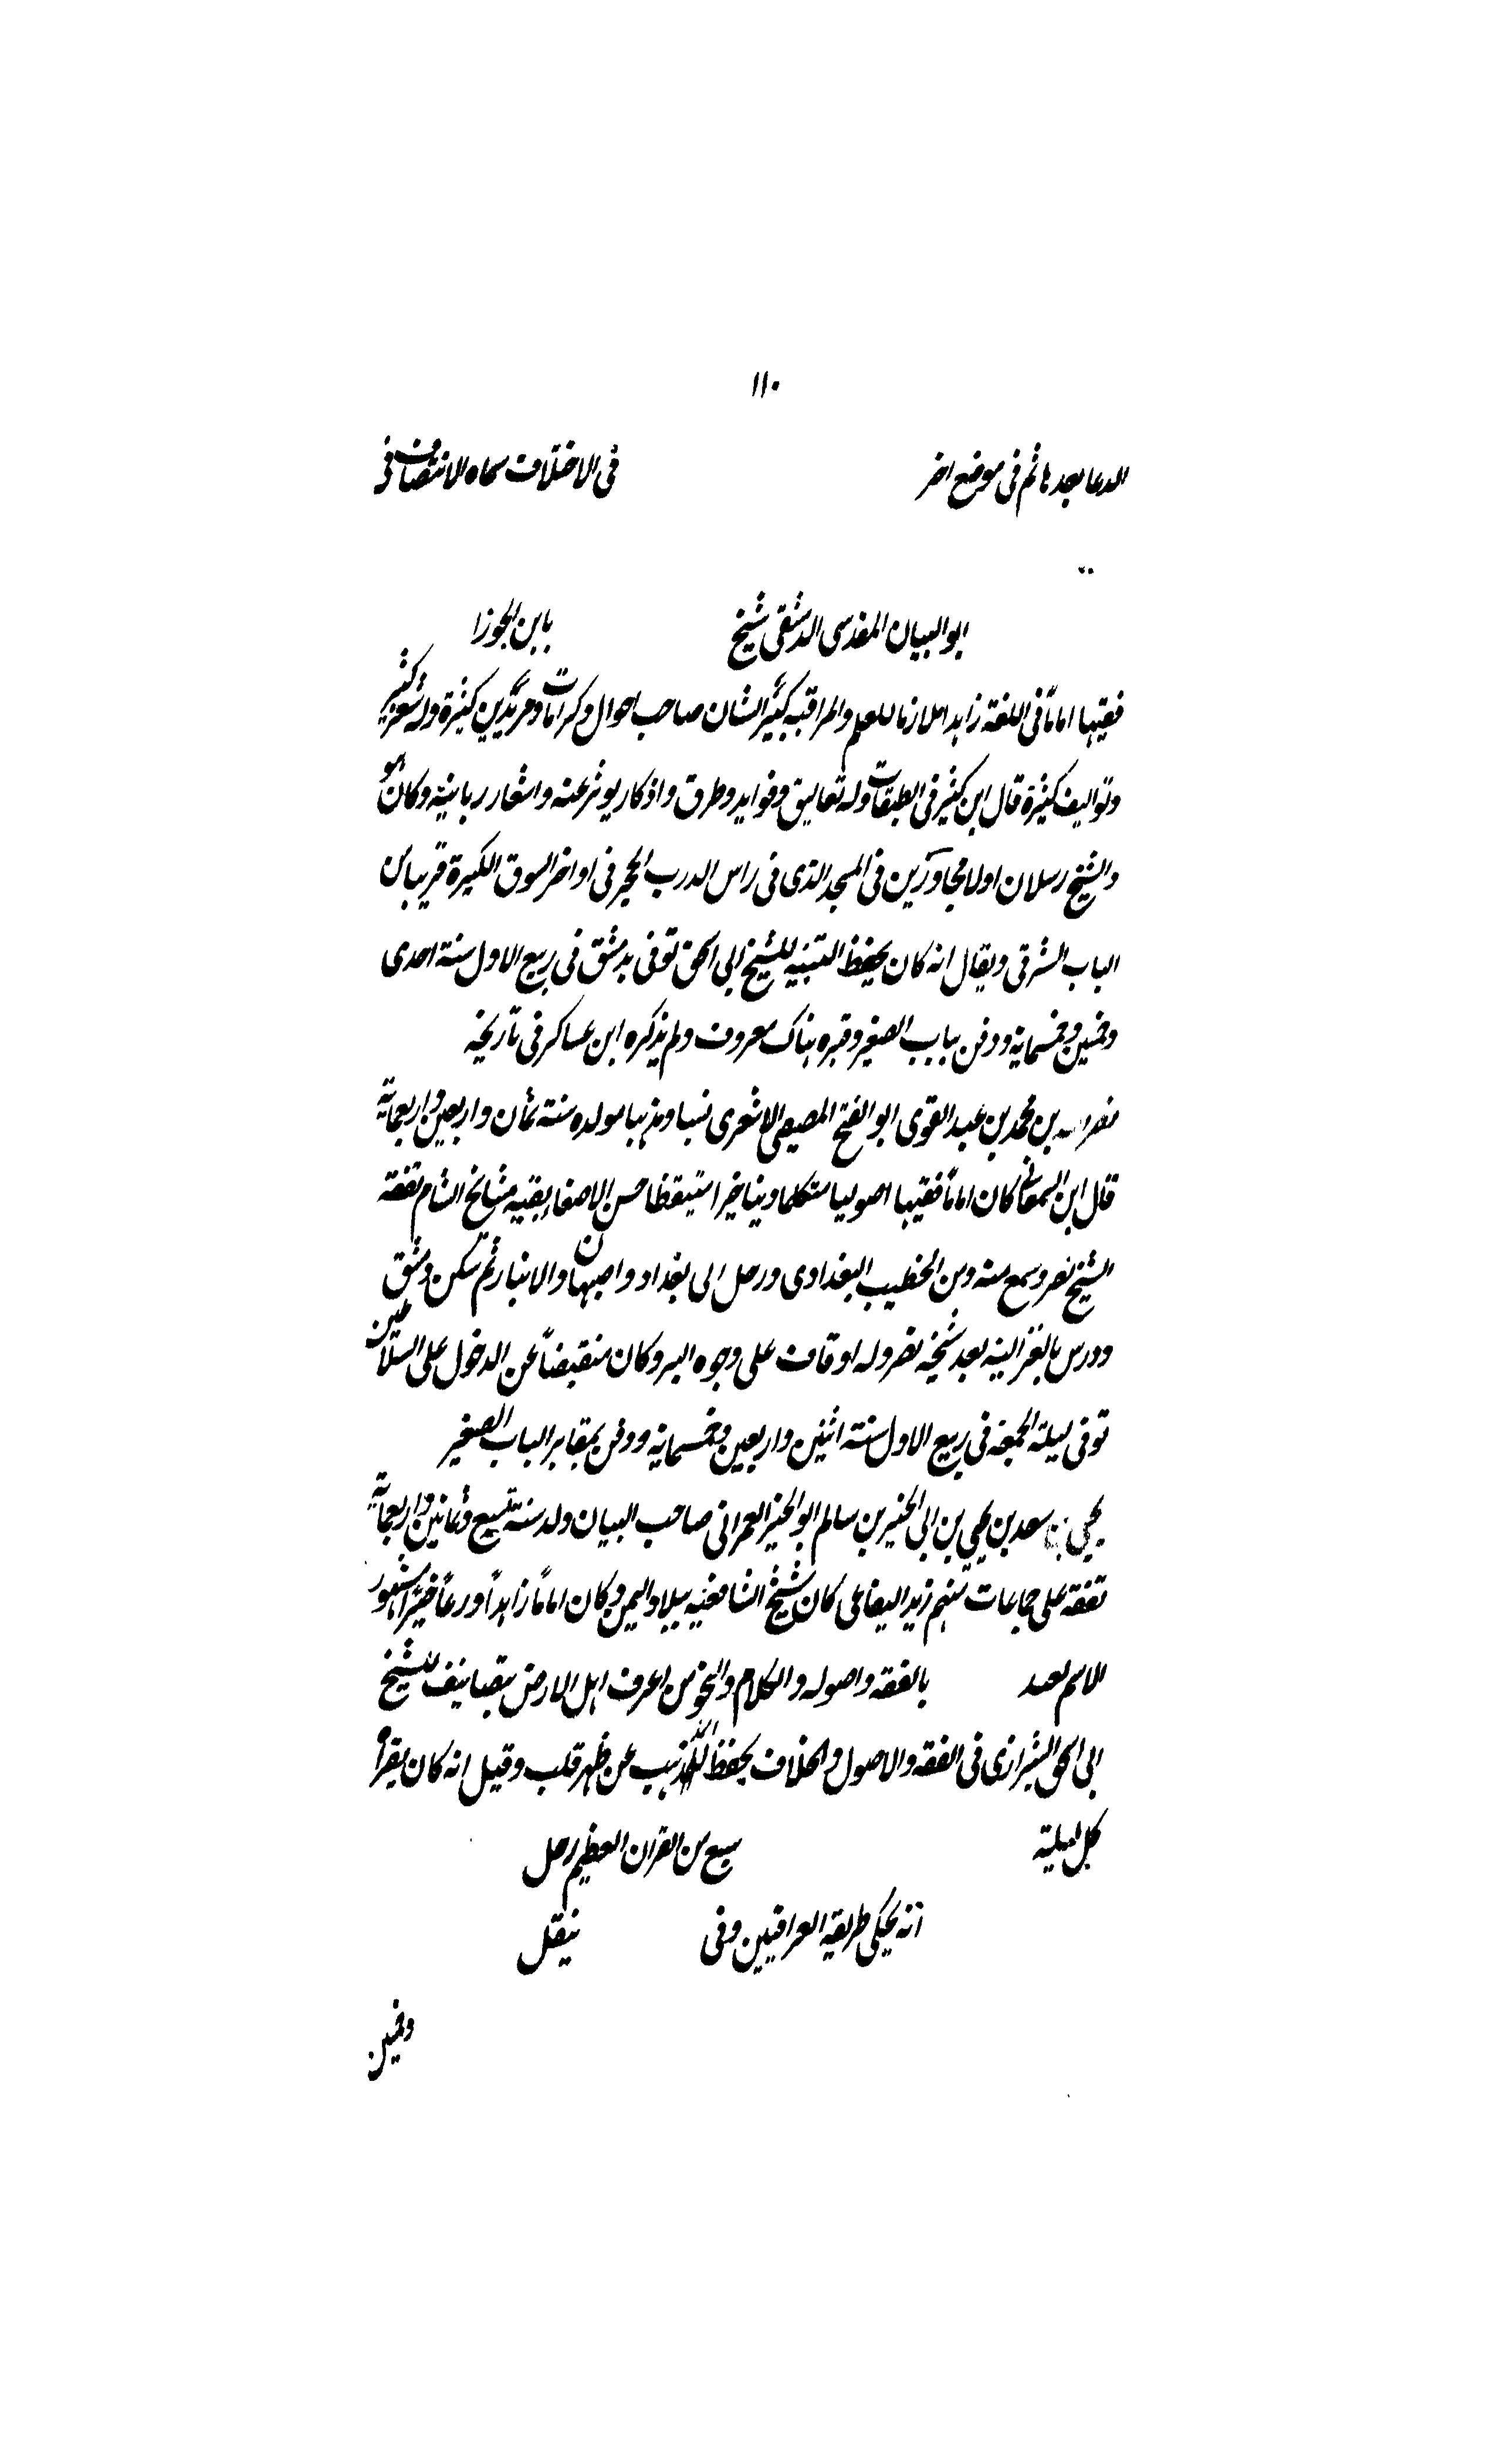 ١١٠
الدعا بعدها ثم فى موضع اخر فى الاختلاف سماه الانتصاف فى
ابو البيان المقدسى الدمشقى شيخ بابن الجوزا
فقيها اماماً فى اللغة زاهدا ملازما للعلم والمراقبة كبير الشان صاحب احوال وكرامات ومريدين كثيرة وله شعر كثير
وتواليف كثيرة قال ابن كثير فى الطبقات وله تعاليق وفوايد وطرق واذكار يوثر عنه واشعار ربانية وكان هو
والشيخ رسلان اولا مجاورين فى المسجد الذى فى راس الدرب الحجر فى اواخر السوق الكبيرة قريبا من
الباب الشرقى ويقال انه كان يحفظ التنبيه للشيخ ابى اسحق توفى بدمشق فى ربيع الاول سنة احدى
وخمسين وخمسماية ودفن بباب الصغير وقبره هناك معروف ولم يذكره ابن عساكر فى تاريخه
نصر الله بن محمد بن عبد القوى ابو الفتح المصيصى الاشعرى نسبا ومذهبا مولده سنة ثمان واربعين واربعماية
قال ابن السمعانى كان اماماً فقيها اصوليا متكلما دينا خيرا متيقظا حسن الاصغا بقيه مشايخ الشام تفقه
الشيخ نصر وسمع منه ومن الخطيب البغدادى ورحل الى بغداد واصبهان والانبار ثم سكن دمشق
ودرس بالغزالية بعد شيخه نصر وله اوقاف على وجوه البر وكان منقبضاً عن الدخول على السلاطين
توفى ليلة الجمعة فى ربيع الاول سنة اثنين واربعين وخمسماية ودفن بمقابر الباب الصغير
يحيى بن سعد بن يحيى بن ابى الخير بن سالم ابو الخير العمرانى صاحب البيان ولد سنة تسع وثمانين واربعماية
تفقه على جماعات منهم زيد اليفاعى كان شيخ الشافعية ببلاد اليمن وكان اماماً زاهداً ورعاً خيراً مشهور
الاسم بعيد بالفقه واصوله والكلام والنحو من اعرف اهل الارض بتصانيف الشيخ
ابى اسحق الشيرازى فى الفقه والاصول والخلاف يحفظ المهذب عن ظهر قلب وقيل انه كان يقرأه
كل ليلة سبع من القران العظيم رحل
انه يحكى طريقة العراقيين وفى ينقل
وخمسين